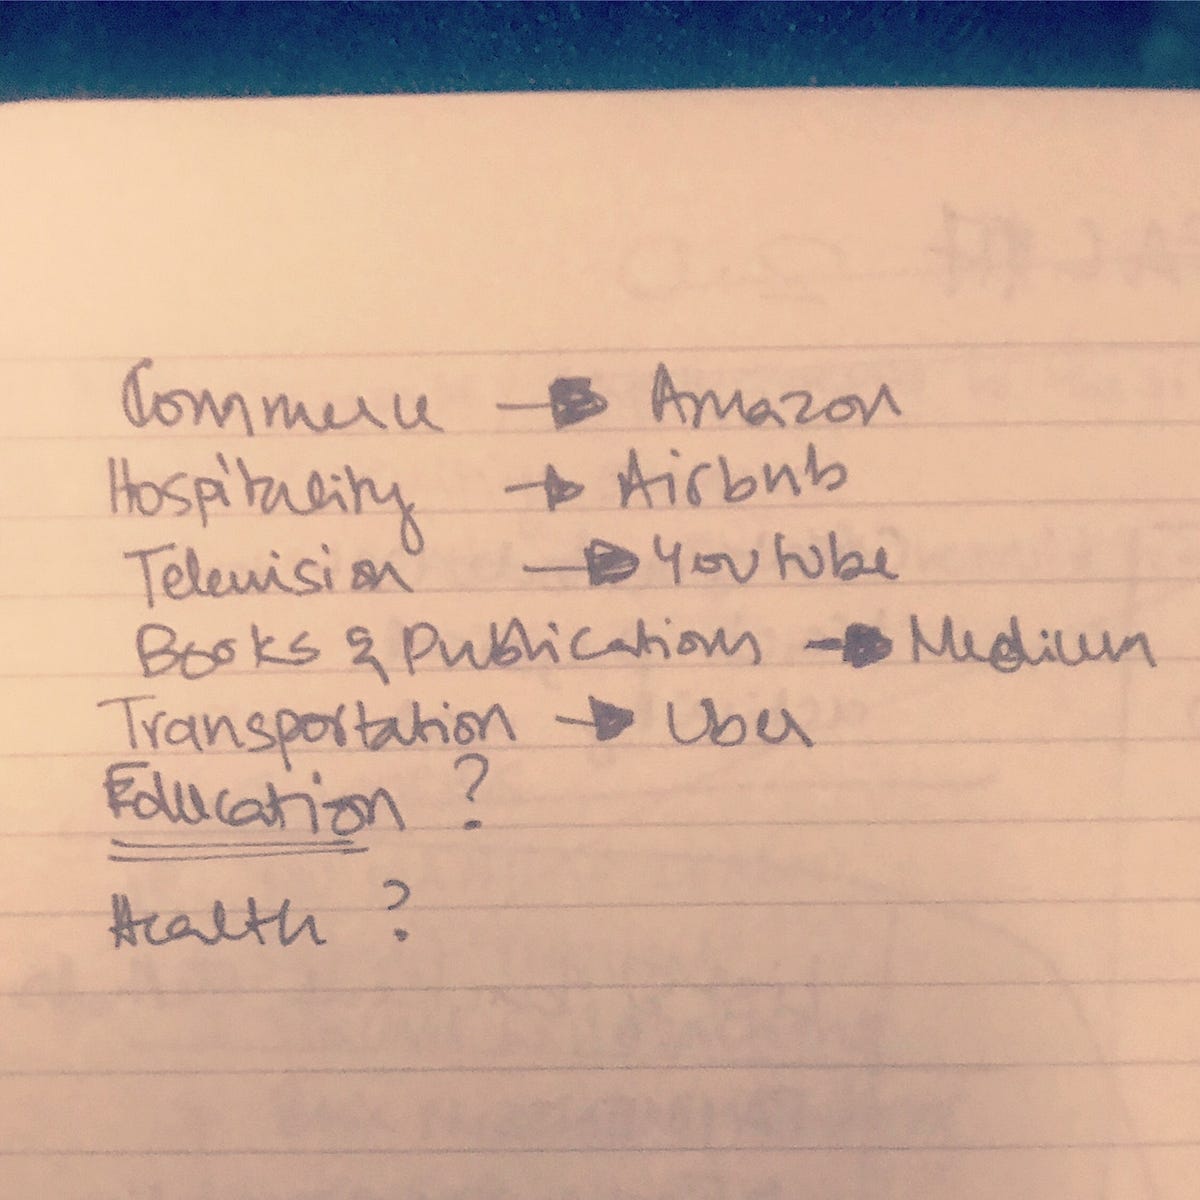 Commerce → Amazon
Hospitality → Airbnb
Television → Youtube
Books & Publications → Medium
Transportation → Uber
Education ?
Health ?